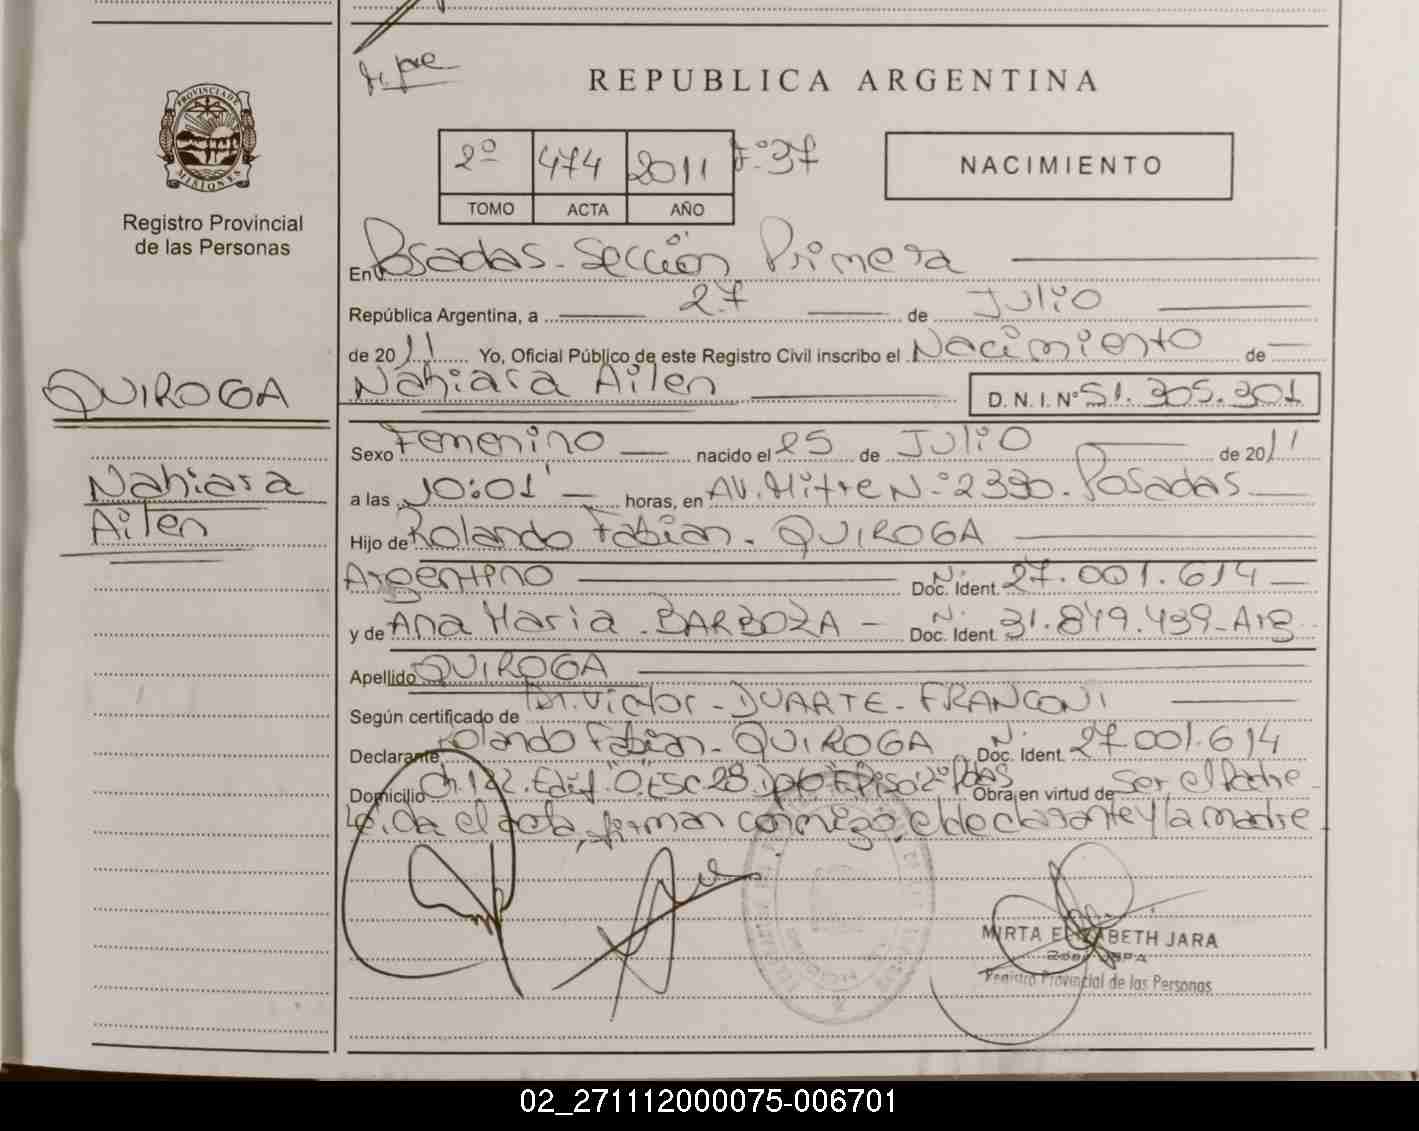 REPUBLICA ARGENTINA
PROVINCIA DE
MISIONES
Registro Provincial
de las Personas
2º 474 2011 Fº37
TOMO ACTA AÑO
NACIMIENTO
En Posadas - Sección Primera
República Argentina, a 27 de Julio
de 2011 Yo, Oficial Público de este Registro Civil inscribo el Nacimiento de
Nahiara Ailen D. N. I. Nº 51.305.301
QUIROGA
Nahiara
Ailen
Sexo Femenino nacido el 25 de JULIO de 2011
a las 10:01' horas, en AV. Mitre N°2390. Posadas
Hijo de Rolando Fabian. QUIROGA
Argentino Nº Doc. Ident. 27.001.614
y de Ana Maria. BARBOZA Nº Doc. Ident. 31.849.439-Arg
Apellido QUIROGA
Según certificado de Dr. Victor - DUARTE - FRANCONI
Declarante Rolando Fabian - QUIROGA Nº Doc. Ident. 27.001.614
Domicilio Ch.122. Edif. O. Esc.28. Dpto E Piso:2º Pdas Obra en virtud de Ser el Padre
Leída el acta, firman conmigo, el declarante y la madre
MIRTA ELIZABETH JARA
Registro Provincial de las Personas
02_271112000075-006701